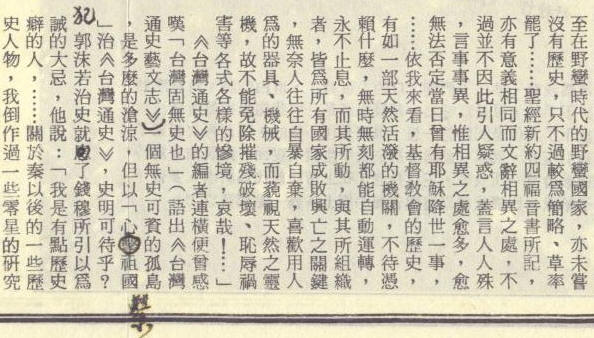 至在野蠻時代的野蠻國家，亦未嘗
沒有歷史，只不過較爲簡略、草率
罷了……聖經新約四福音書所記，
亦有意義相同而文辭相異之處，不
過並不因此引人疑惑，蓋言人人殊
，言事事異，惟相異之處愈多，愈
無法否定當日曾有耶穌降世一事，
……依我來看，基督教會的歷史，
有如一部天然活潑的機關，不待憑
賴什麼，無時無刻都能自動運轉，
永不止息，而其所動，與其所組織
者，皆爲所有國家成敗興亡之關鍵
，無奈人往往自暴自棄，喜歡用人
爲的器具、機械，而藐視天然之靈
機，故不能免除摧殘破壞、恥辱禍
害等各式各樣的慘境，哀哉！…」
《台灣通史》的編者連橫便曾感
嘆「台灣固無史也」（語出《台灣
通史藝文志》）一個無史可資的孤島
，是多麼的滄涼，但以「心祖國
」治《台灣通史》，史明可待乎？
犯
郭沫若治史就了錢穆所引以爲
誡的大忌，他說：「我是有點歷史
癖的人，……關於秦以後的一些歷
史人物，我倒作過一些零星的研究